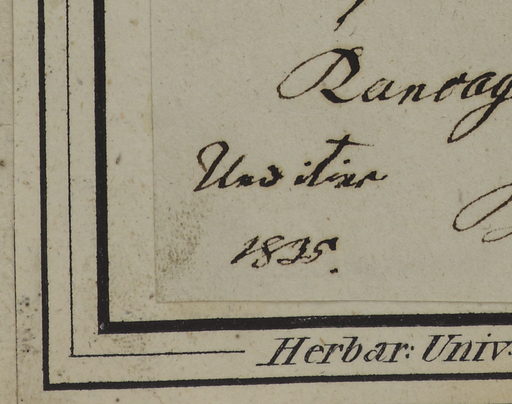 Rancag
Und itin
1835.
Herbar: Univ.